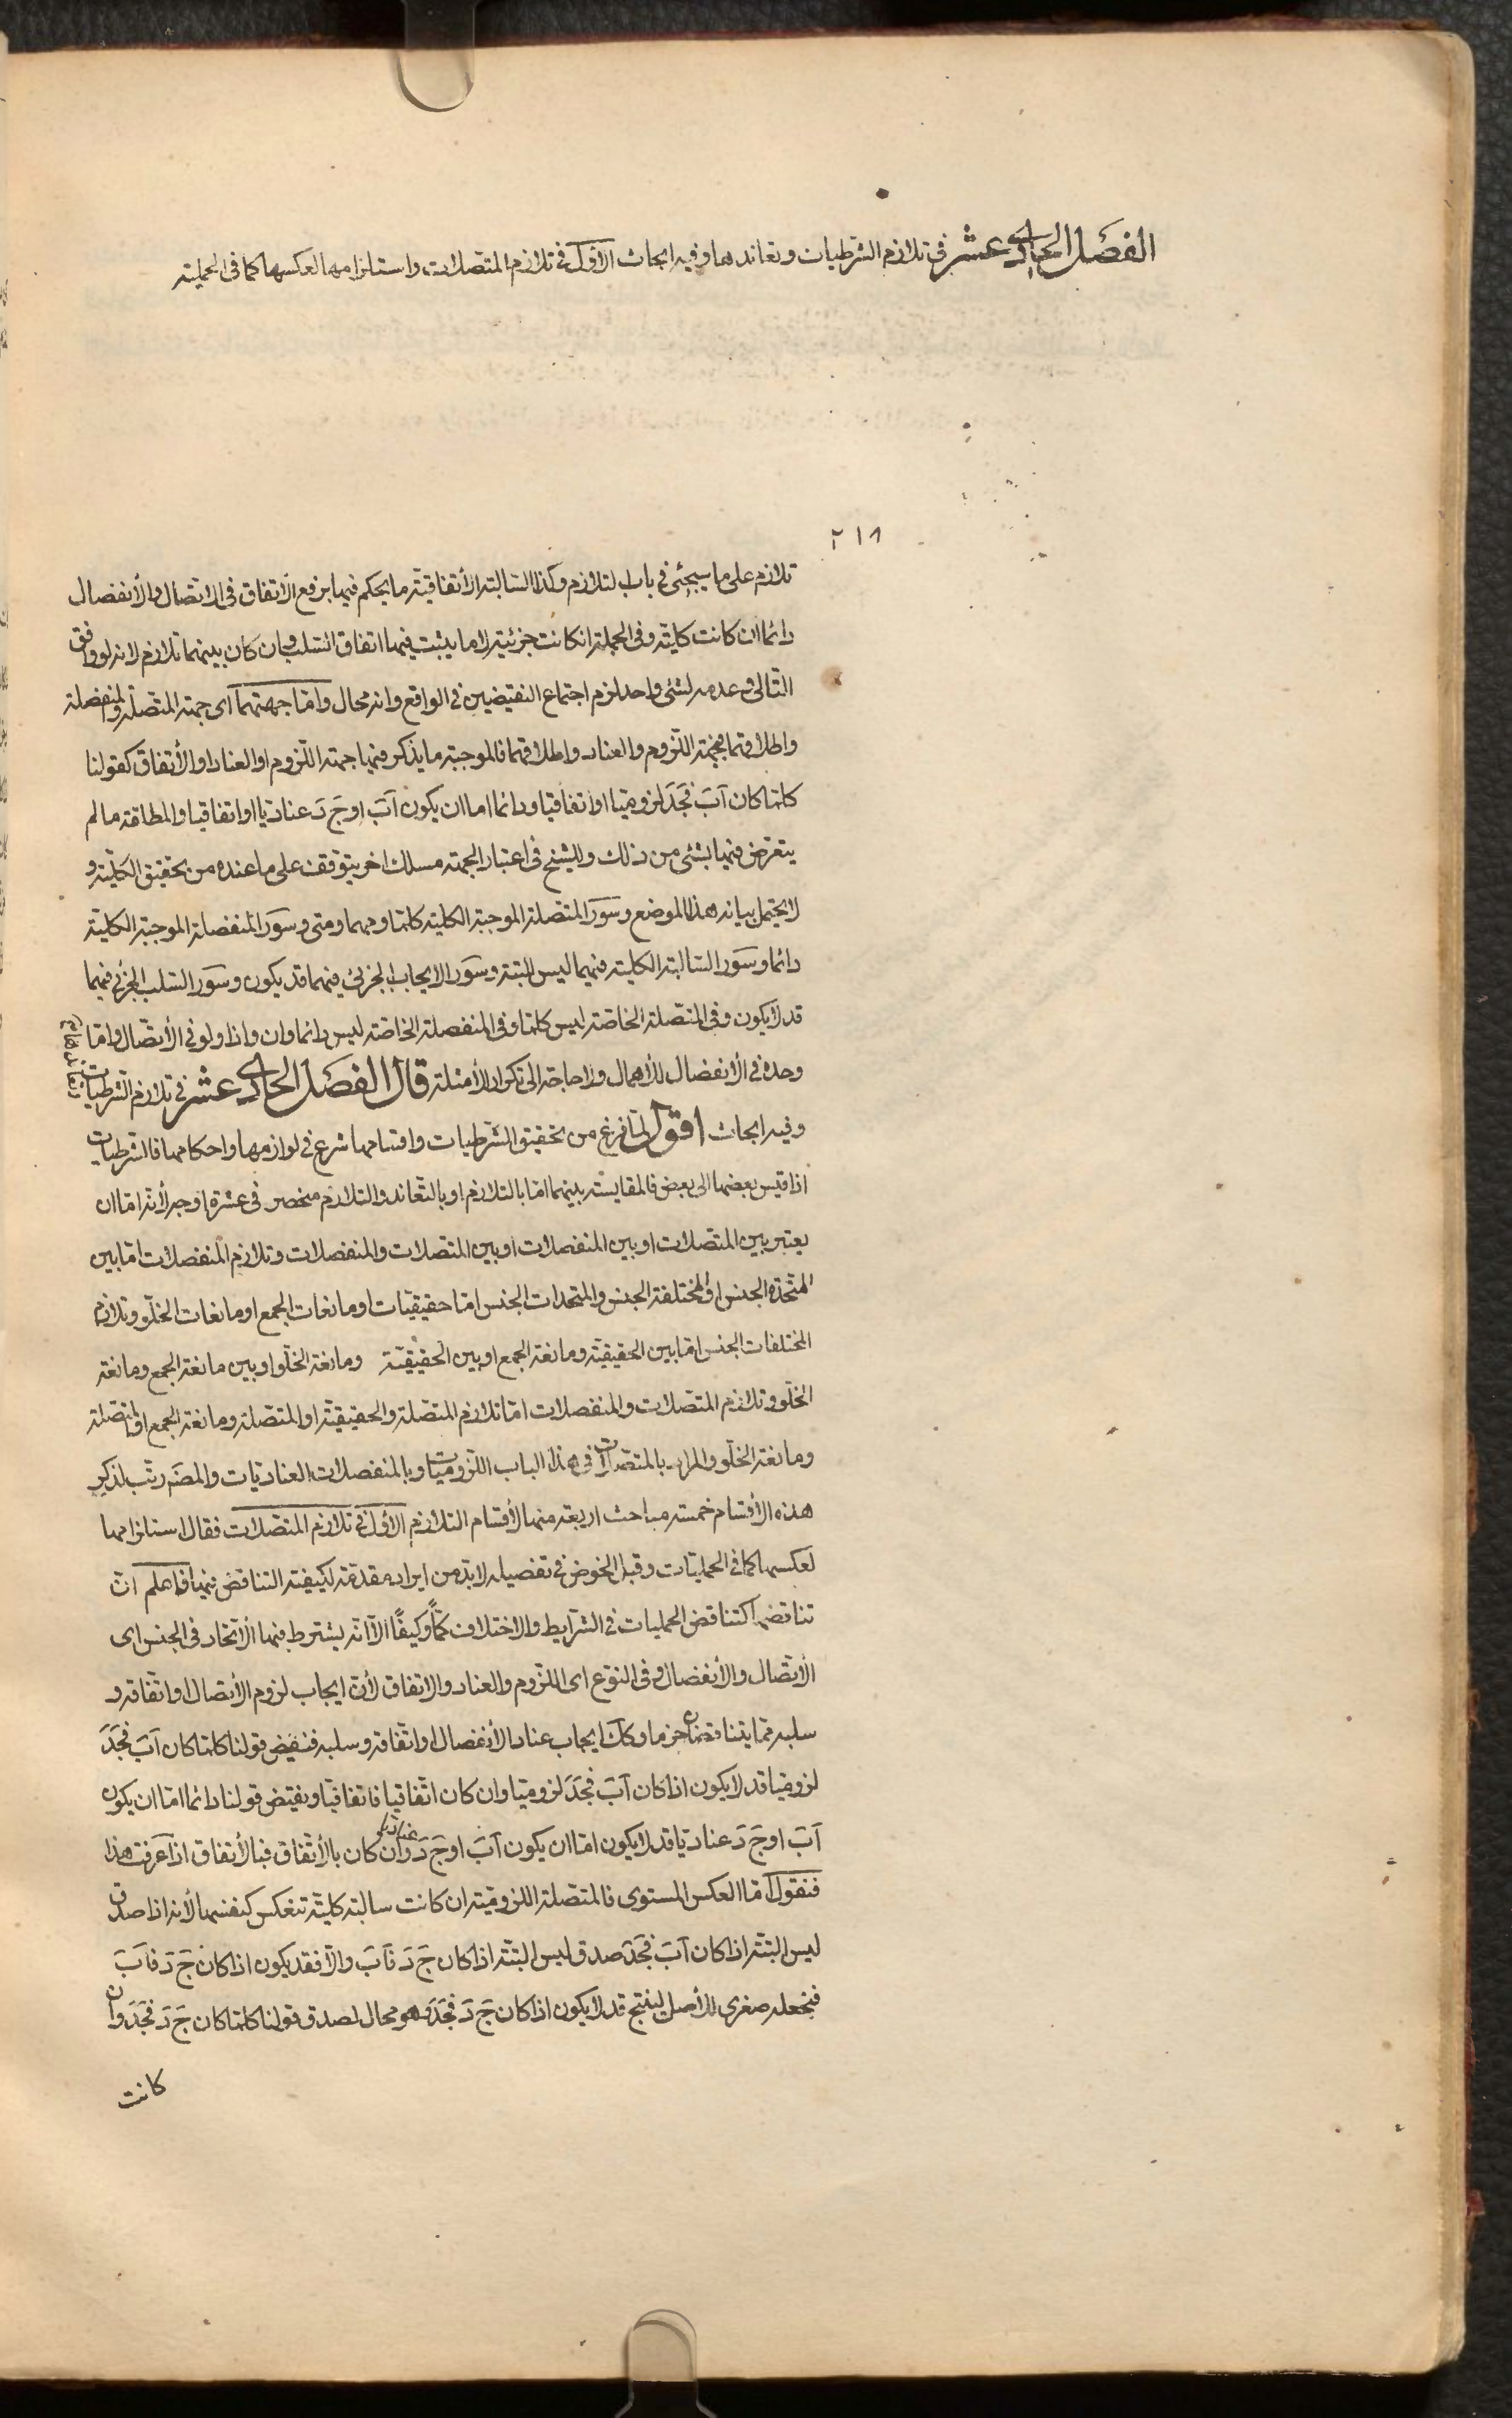 الفصل الحادي عشر في تلازم الشرطيات وتعاندها وفيه ابحاث الأول في تلازم المتصلات واستلزامها لعكسها كما في الحملية
٢١٨
تلازم على ما سيجئ في باب التلازم وكذا السالبة الأتفاقية ما يحكم فيها برفع الأتفاق في الاتصال والأنفصال
دائما ان كانت كلية وفي الجملة ان كانت جزئية لا ما يثبت فيها اتفاق السلب وان كان بينهما تلازم لانه لو وافق
التالي وعدمه لشئ واحد لزم اجتماع النقيضين في الواقع وانه محال واما جهتهما اى جهة المتصلة والمنفصلة
واطلاقهما فجهة اللزوم والعناد واطلاقهما فالموجبة ما يذكر فيها جهة اللزوم او العناد او الأتفاق كقولنا
كلما كان آب فجد لزوميا او اتفاقيا ودائما اما ان يكون آب او ج د عناديا او اتفاقيا والمطلقة ما لم
يتعرض فيها بشئ من ذلك وللشيخ في اعتبار الجهة مسلك اخر يتوقف على ما عنده من تحقيق الكلية و
لا يحتمل بيانه هذا الموضع وسور المتصلة الموجبة الكلية كلما ومهما ومتى وسور المنفصلة الموجبة الكلية
دائما وسور السالبة الكلية فيهما ليس البتة وسور الايجاب الجزئى فيهما قد يكون وسور السلب الجزئى فيهما
قد لا يكون وفي المتصلة الخاصة ليس كلما وفي المنفصلة الخاصة ليس دائما وان واذا ولو في الأتصال واما
وحده في الأنفصال للأهمال ولا حاجة الى تكرار الأمثلة قال الفصل الحادي عشر في تلازم الشرطيات
وفيه ابحاث اقول لما فرغ من تحقيق الشرطيات واقسامها شرع في لوازمها واحكامها فالشرطيات
اذا قيس بعضها الى بعض فالمقايسة بينهما اما بالتلازم او بالتعاند والتلازم منحصر في عشرة اوجه لأنه اما ان
يعتبر بين المتصلات او بين المنفصلات او بين المتصلات والمنفصلات وتلازم المنفصلات اما بين
المتحدة الجنس او المختلفة الجنس والمتحدات الجنس اما حقيقيات او مانعات الجمع او مانعات الخلو وتلازم
المختلفات الجنس اما بين الحقيقية ومانعة الجمع او بين الحقيقية ومانعة الخلو او بين مانعة الجمع ومانعة
الخلو وتلازم المتصلات والمنفصلات اما تلازم المتصلة والحقيقية او المتصلة ومانعة الجمع او المتصلة
ومانعة الخلو والمراد بالمتصلات في هذا الباب اللزوميات وبالمنفصلات العناديات والمصنف رتب لذكر
هذه الأقسام خمسة مباحث اربعة منها لأقسام التلازم الأول في تلازم المتصلات فقال استلزامها
لعكسها كما في الحمليات وقبل الخوض في تفصيله لا بد من ايراد مقدمة لكيفية التناقض فيها فاعلم ان
تناقضها كتناقض الحمليات في الشرايط والاختلاف كمًّا وكيفًا الا انه يشترط فيها الأتحاد في الجنس اى
الأتصال والأنفصال وفي النوع اى اللزوم والعناد والاتفاق لأن ايجاب لزوم الأتصال او اتفاقه و
سلبه مما يتناقضان جزما وكك ايجاب عناد الأنفصال او اتفاقه وسلبه فنقيض قولنا كلما كان آب فجد
لزوميا قد لا يكون اذا كان آب فجد لزوميا وان كان اتفاقيا فاتفاقيا ونقيض قولنا دائما اما ان يكون
آب او ج د عناديا قد لا يكون اما ان يكون آب او ج د عناديا وان كان بالأتفاق فبالأتفاق اذا عرفت هذا
فنقول اما العكس المستوى فالمتصلة اللزومية ان كانت سالبة كلية تنعكس كنفسها لأنه اذا صدق
ليس البتة اذا كان آب فجد صدق ليس البتة اذا كان ج د فآب والا فقد يكون اذا كان ج د فآب
فنجعله صغرى للأصل لينتج قد لا يكون اذا كان ج د فجد وهو محال لصدق قولنا كلما كان ج د فجد وان
كانت